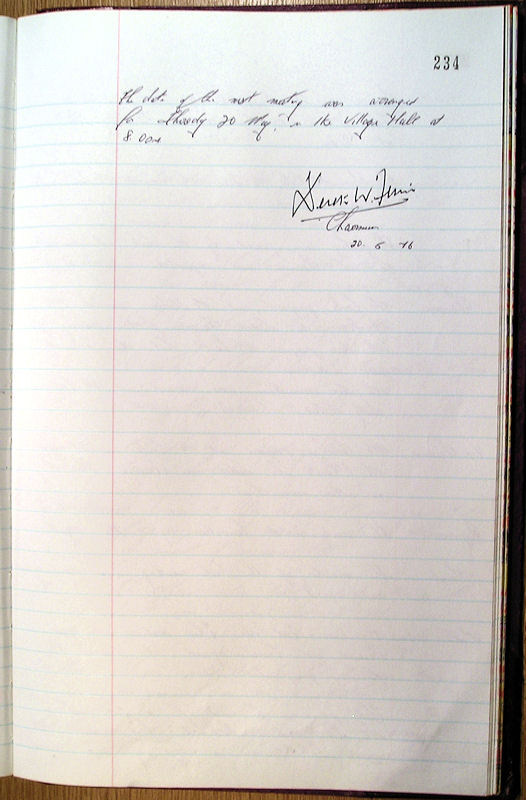 234
The date of the next meeting was arranged
for Thursday 20 May, in the Village Hall at
8.00
Derek W.
Chairman
20. 5 76